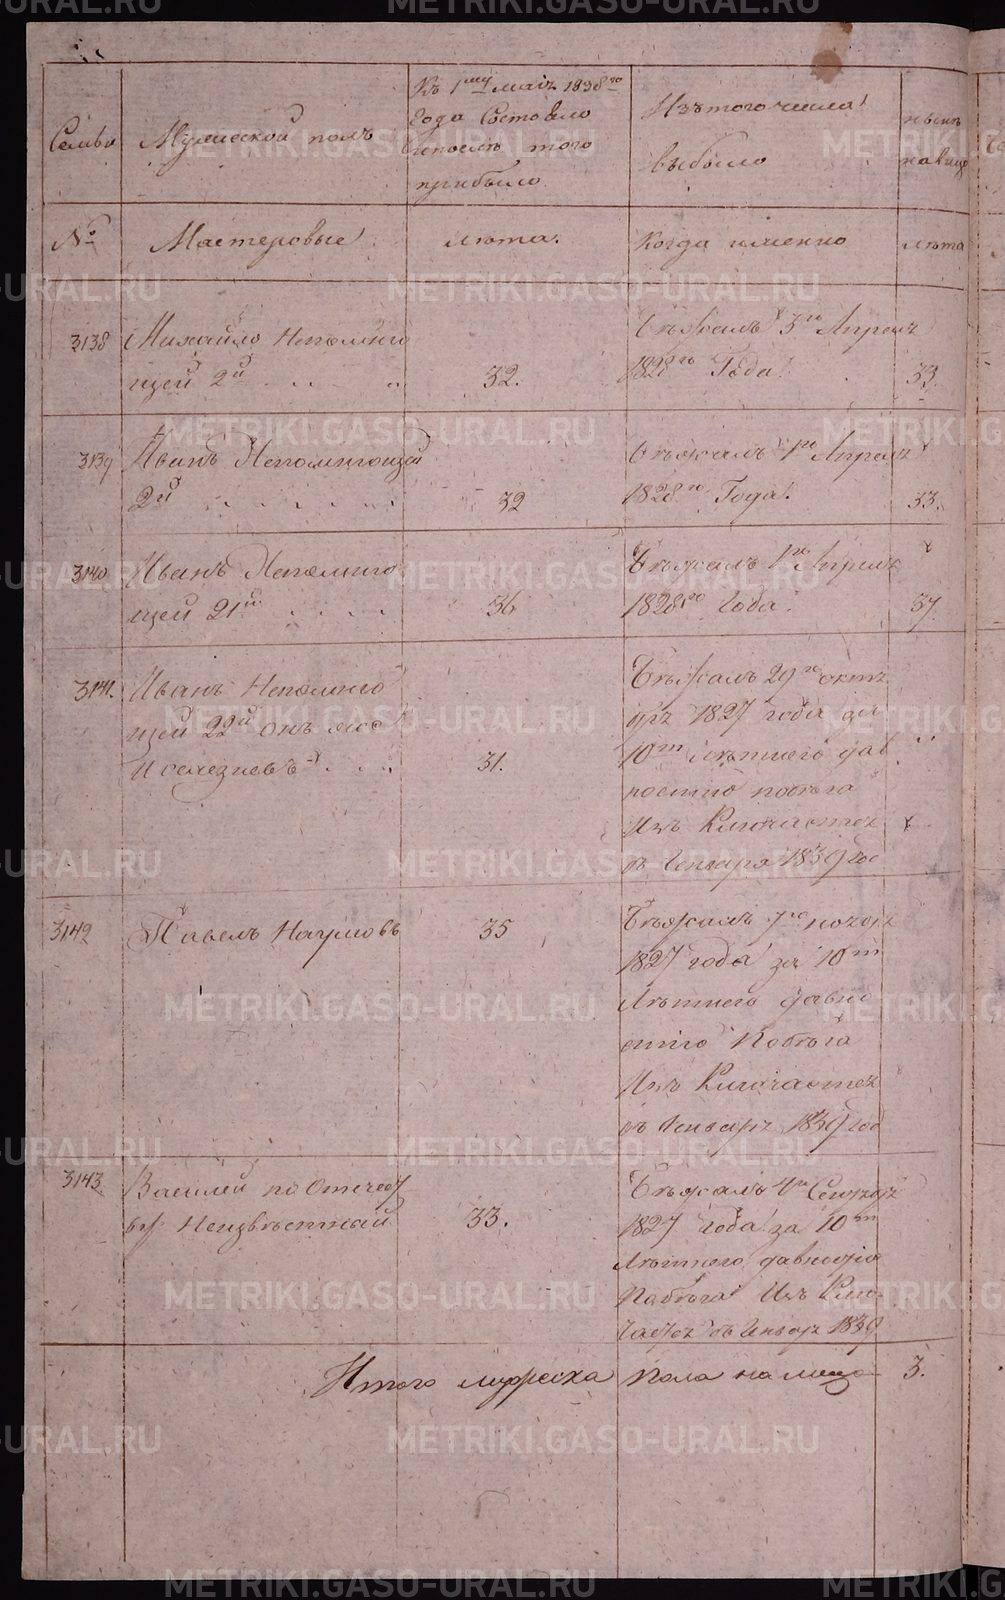 Семьи
Мужеской полъ
Къ 1му маія 1838го
года Состояло
и после того
прибыло
Изътого числа
выбыло
ныне
на лице
№
Мастеровые
лета.
Когда именно
лета
3138
Михайло Непомню
щей 2й
32.
Бежалъ 3го Апреля
1828го Года
33.
3139
Иванъ Непомнющей
2й
32
Бежалъ 1го Апреля
1828го Года
33.
3140
Иванъ Непомню
щей 21й
36
Бежалъ 1го Апреля
1828го года
37.
3141.
Иванъ Непомню
щей 22й онъ же
И селезневъ
31.
Бежалъ 29го октя
бря 1827 года за
10ти летнею дав
ностию побега
Изъ Ключается
въ Генваря 1839 год
3142
Павелъ Наумовъ
35
Бежалъ 7го ноября
1827 года за 10ти
Летнею давно
стию Побега
Изъ Ключается
въ Генваря 1839 год
3143.
Василей по Отечест
ву Неизвестный
33.
Бежалъ 4го Сентября
1827 года за 10ти
Летнею давностию
Побега Изъ Клю
чается въ Генваря 1839
Итого мужеска пола на лицо 3.
METRIKI.GASO-URAL.RU